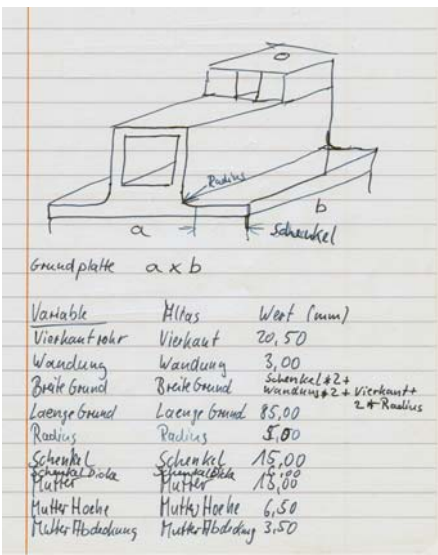 Radius
a
b
Schenkel
Grundplatte a x b
Variable Alias Wert (mm)
Vierkantrohr Vierkant 20,50
Wandung Wandung 3,00
Breite Grund Breite Grund Schenkel*2+
Wandung*2+Vierkant+
2*Radius
Laenge Grund Laenge Grund 85,00
Radius Radius 5,00
Schenkel Schenkel 15,00
Schenkel Dicke Schenkel Dicke
Mutter Mutter 13,00
Mutter Hoehe Mutter Hoehe 6,50
Mutter Abdeckung Mutter Abdeckung 3,50